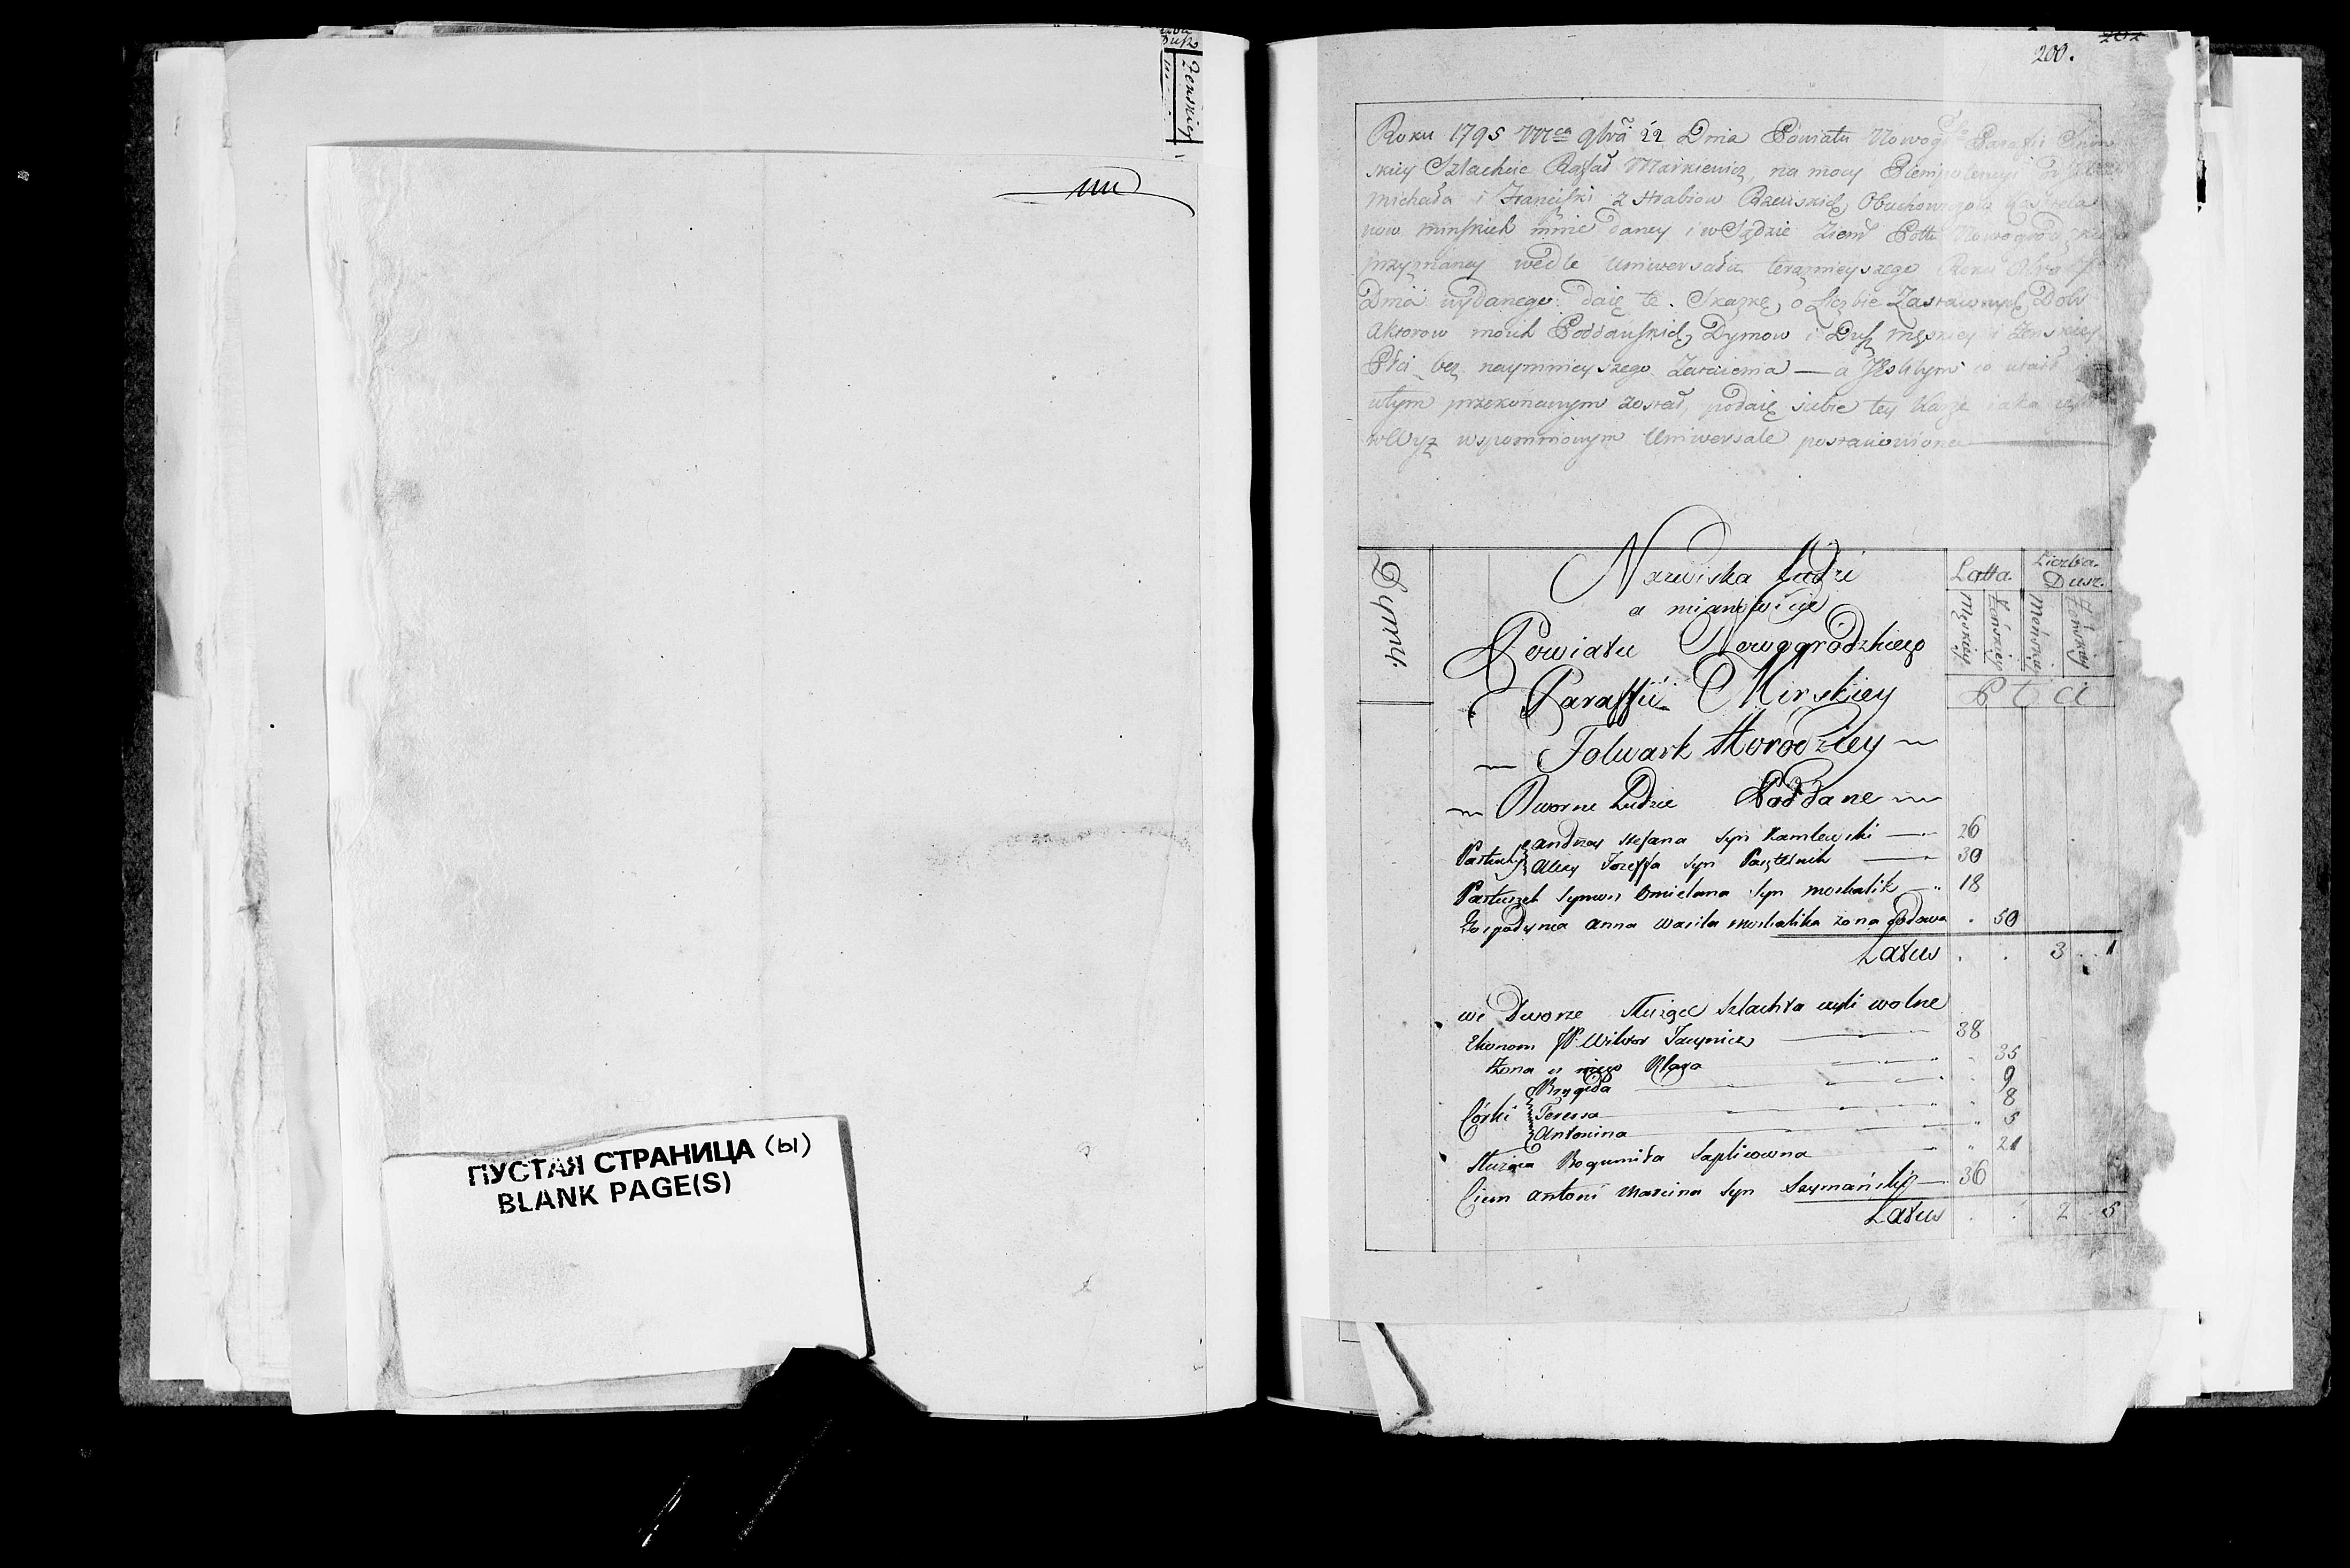 Dusz
Zenskiey
ПУСТАЯ СТРАНИЦА (ы)
BLANK PAGE(S)
202
200.
Roku 1795 Mca 9bra 22 Dnia Powiatu Nowog Parafii
skiey Szlachcic Rafał Markiewicz, na mocy Plenipotencyi
Michała i Franciszki z Hrabiow Rzewuskich Obuchowiczow Kasztela
now minskich mnie daney i w Sądzie Ziem Pottu Nowogrodzkiego
przyznaney wedle Uniwersału teraznieyszego Roku
Dnia wydanego daię tę Skazkę, o Liczbie Zastawnych Dobr
Aktorow moich Poddanskich Dymow i Dusz męskiey i Zenskiey
Płci bez naymnieyszego Zataienia — a Jeslibym co utaił i
wtym przekonanym został, podaię siebie tey karze iaka iest
w Wyz wspomnionym Uniwersale postanowiona
Dymy.
Nazwiska Ludzi
a mianowicie
Powiatu Nowogródzkiego
Paraffii Mirskiey
Folwark Horódziey
Dworne Ludzie Poddane
Latta.
Liczba Dusz.
Męskiey
Zeńskiey
Menskiey
Zenskiey
Płci
Pastuchy Andrzey Stefana Syn Kamlewski 26
Alexy Jozeffa Syn 30
Pastuszek Symon Omielana Syn moskalik 18
Gospodynia Anna Wasila moskalika zona Wdowa 50
Latus 3 1
we Dworze Służące Szlachta czyli wolne
Ekonom JP. Wiktor 38
Żona u niego Klara 35
Córki Brygida 9
Teressa 8
Antonina 5
Służąca Bogumiła Saplicowna 21
Antoni Marcina Syn Szymański 36
Latus 2 5